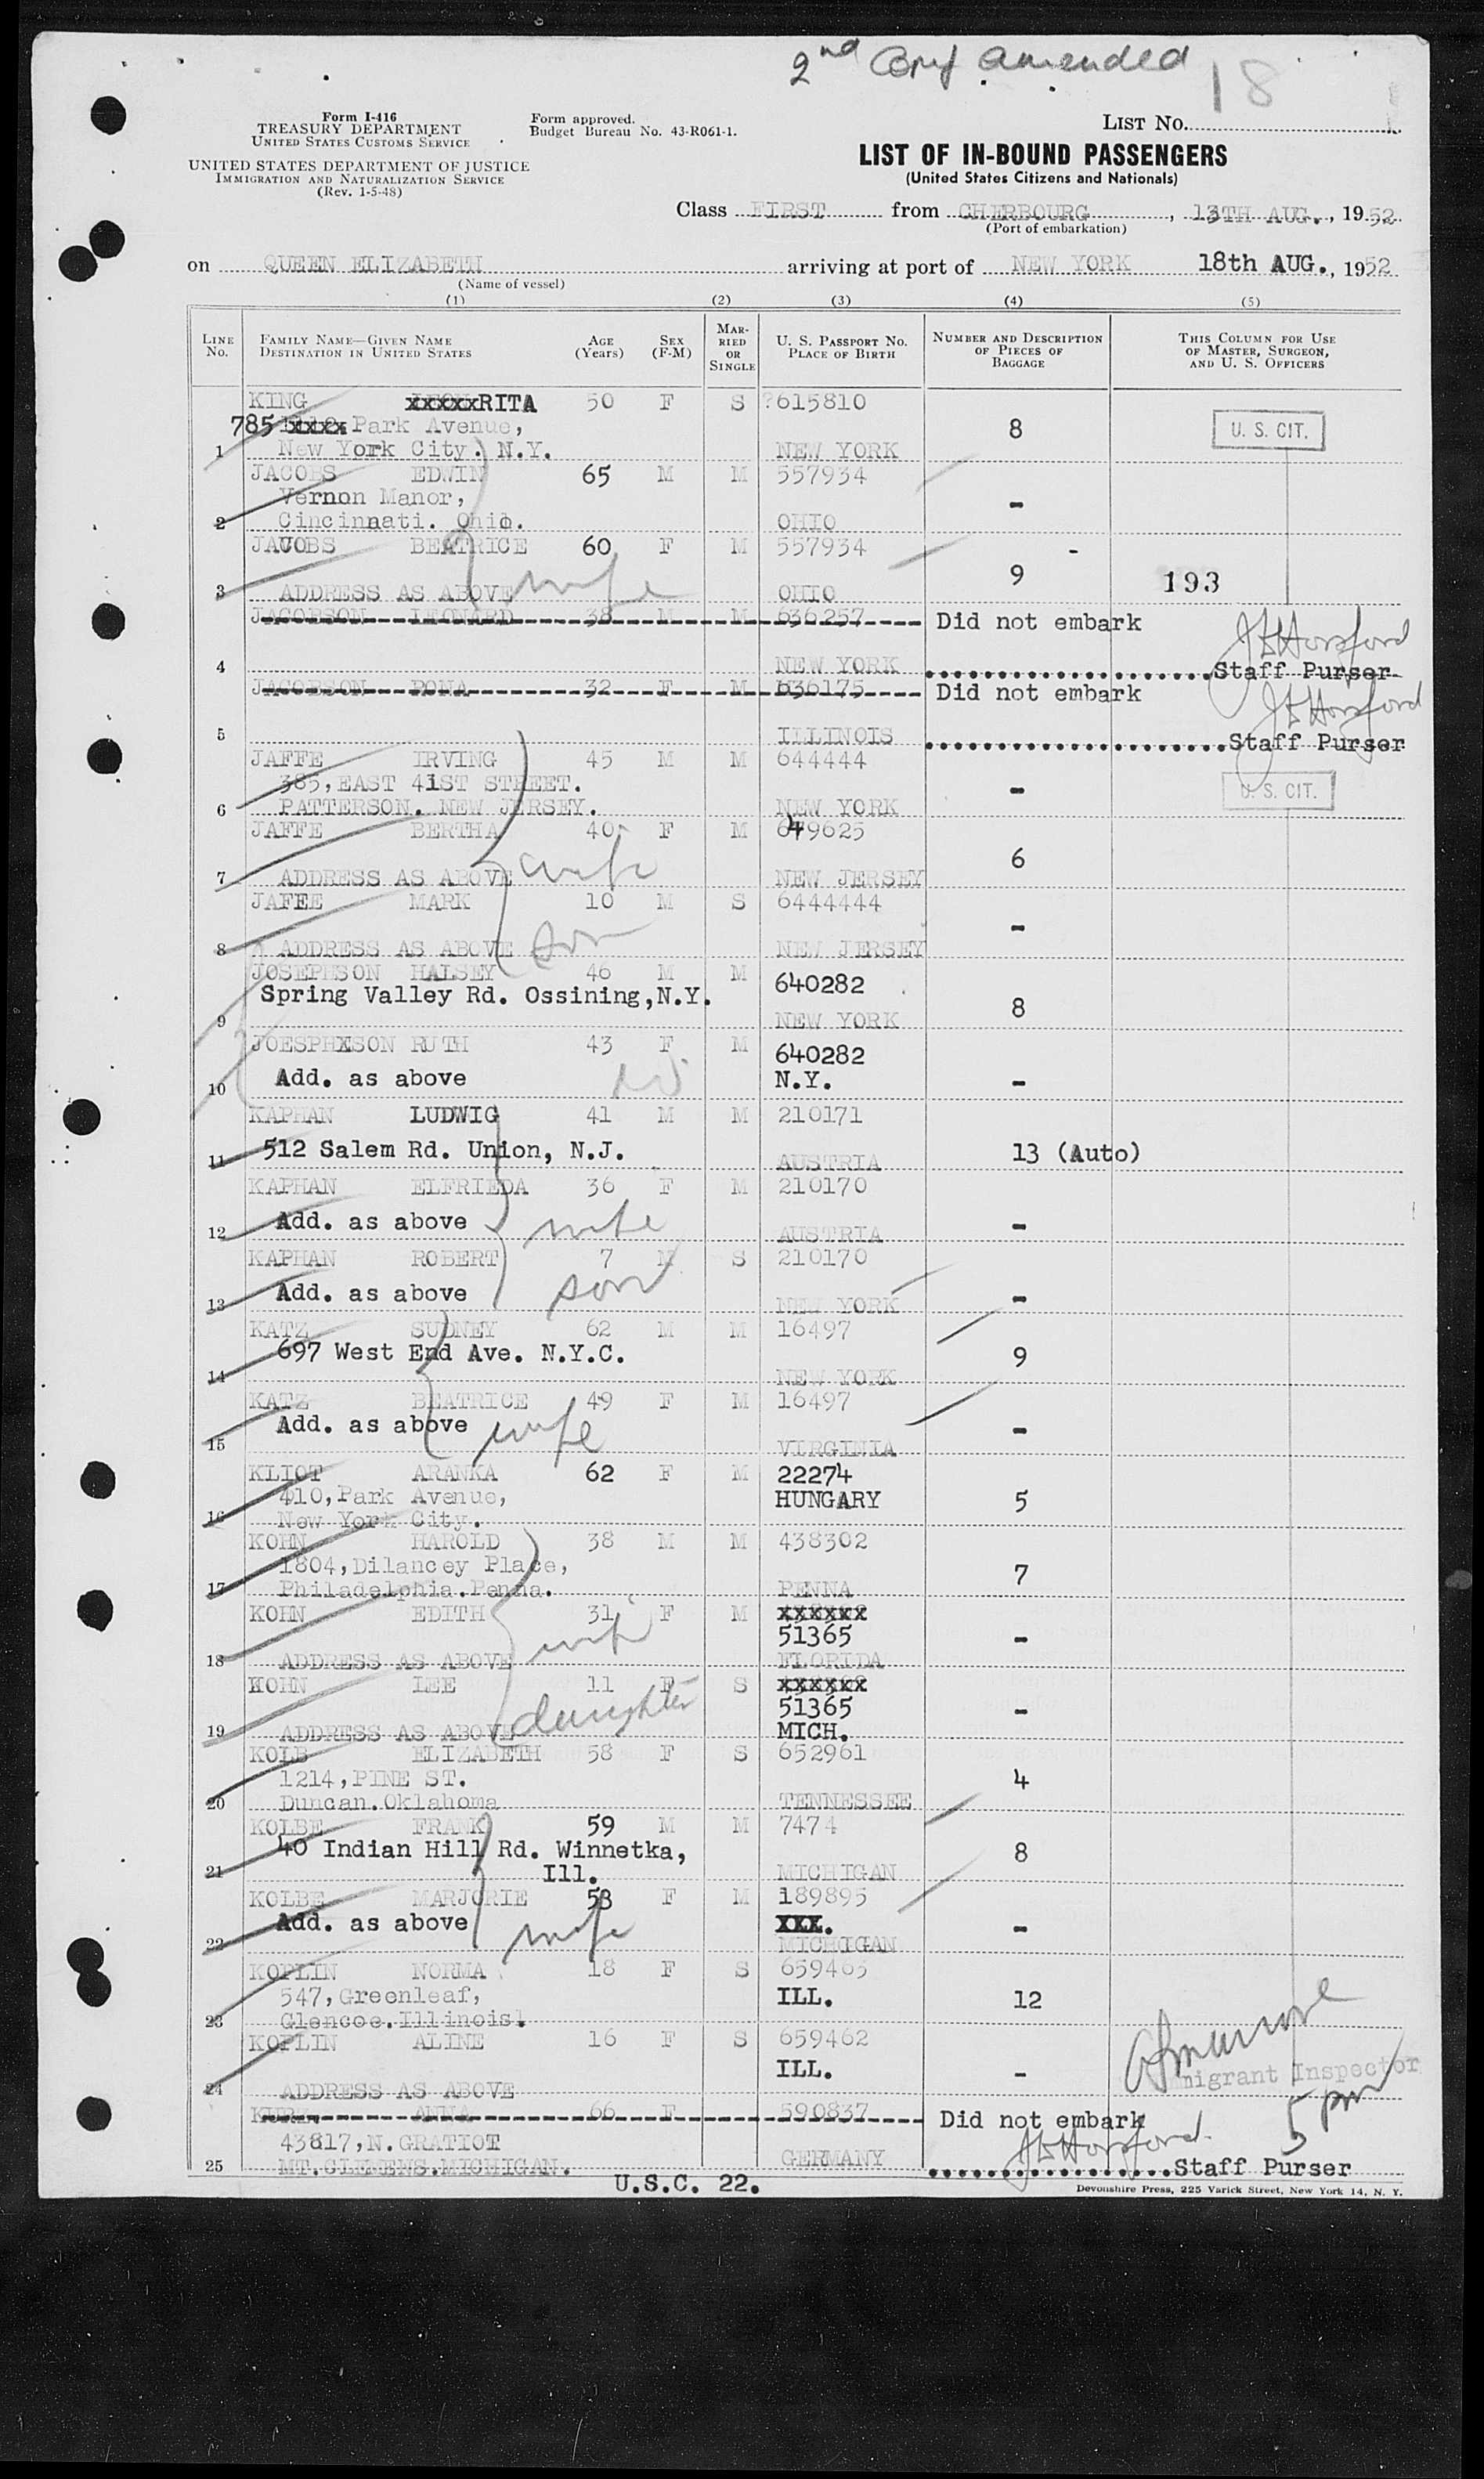 2nd Copy amended
18
Form I-416
TREASURY DEPARTMENT
UNITED STATES CUSTOMS SERVICE
Form approved.
Budget Bureau No. 43-R061-1.
LIST NO.
UNITED STATES DEPARTMENT OF JUSTICE
IMMIGRATION AND NATURALIZATION SERVICE
(Rev. 1-5-48)
LIST OF IN-BOUND PASSENGERS
(United States Citizens and Nationals)
Class FIRST from CHERBOURG, 13TH AUG., 1952
(Port of embarkation)
on QUEEN ELIZABETH arriving at port of NEW YORK 18th AUG., 1952
(Name of vessel)
(1) (2) (3) (4) (5)
LINE NO. FAMILY NAME—GIVEN NAME DESTINATION IN UNITED STATES AGE (Years) SEX (F-M) MARRIED OR SINGLE U. S. PASSPORT NO. PLACE OF BIRTH NUMBER AND DESCRIPTION OF PIECES OF BAGGAGE THIS COLUMN FOR USE OF MASTER, SURGEON, AND U. S. OFFICERS
KING xxxxxRITA 50 F S ?615810
785 xxxx Park Avenue, 8 U. S. CIT.
1 New York City. N.Y. NEW YORK
JACOBS EDWIN 65 M M 557934
Vernon Manor, -
2 Cincinnati. Ohio. OHIO
JACOBS BEATRICE 60 F M 557934 -
wife 9 193
3 ADDRESS AS ABOVE OHIO
JACOBSON LEONARD 38 M M 636257 Did not embark
J E Horsford
4 NEW YORK Staff Purser
JACOBSON RONA 32 F M 636175 Did not embark
J E Horsford
5 ILLINOIS Staff Purser
JAFFE IRVING 45 M M 644444
385, EAST 41ST STREET. - U. S. CIT.
6 PATTERSON. NEW JERSEY. NEW YORK
JAFFE BERTHA 40 F M 649625
wife 6
7 ADDRESS AS ABOVE NEW JERSEY
JAFEE MARK 10 M S 6444444
son -
8 ADDRESS AS ABOVE NEW JERSEY
JOSEPHSON HALSEY 46 M M 640282
Spring Valley Rd. Ossining,N.Y. 8
9 NEW YORK
JOESPHXSON RUTH 43 F M 640282
10 Add. as above N.Y. -
KAPHAN LUDWIG 41 M M 210171
11 512 Salem Rd. Union, N.J. AUSTRIA 13 (Auto)
KAPHAN ELFRIEDA 36 F M 210170
12 Add. as above wife AUSTRIA -
KAPHAN ROBERT 7 M S 210170
13 Add. as above son NEW YORK -
KATZ SUDNEY 62 M M 16497
697 West End Ave. N.Y.C. 9
14 NEW YORK
KATZ BEATRICE 49 F M 16497
Add. as above wife -
15 VIRGINIA
KLIOT ARANKA 62 F M 22274
410, Park Avenue, HUNGARY 5
16 New York City.
KOHN HAROLD 38 M M 438302
1804, Dilancey Place, 7
17 Philadelphia. Penna. PENNA
KOHN EDITH 31 F M xxxxxx
wife 51365 -
18 ADDRESS AS ABOVE FLORIDA
KOHN LEE 11 F S xxxxxx
daughter 51365 -
19 ADDRESS AS ABOVE MICH.
KOLB ELIZABETH 58 F S 652961
1214, PINE ST. 4
20 Duncan. Oklahoma TENNESSEE
KOLBE FRANK 59 M M 7474
40 Indian Hill Rd. Winnetka, 8
21 Ill. MICHIGAN
KOLBE MARJORIE 53 F M 189895
Add. as above wife XXX. -
22 MICHIGAN
KOPLIN NORMA 18 F S 659463
547, Greenleaf, ILL. 12
23 Glencoe. Illinois.
KOPLIN ALINE 16 F S 659462
ILL. -
migrant Inspector
24 ADDRESS AS ABOVE
5 pm
KURZ ANNA 66 F 590837 Did not embark
43817, N. GRATIOT J E Horsford
25 MT. CLEMENS. MICHIGAN. GERMANY Staff Purser
U.S.C. 22.
Devonshire Press, 225 Varick Street, New York 14, N. Y.